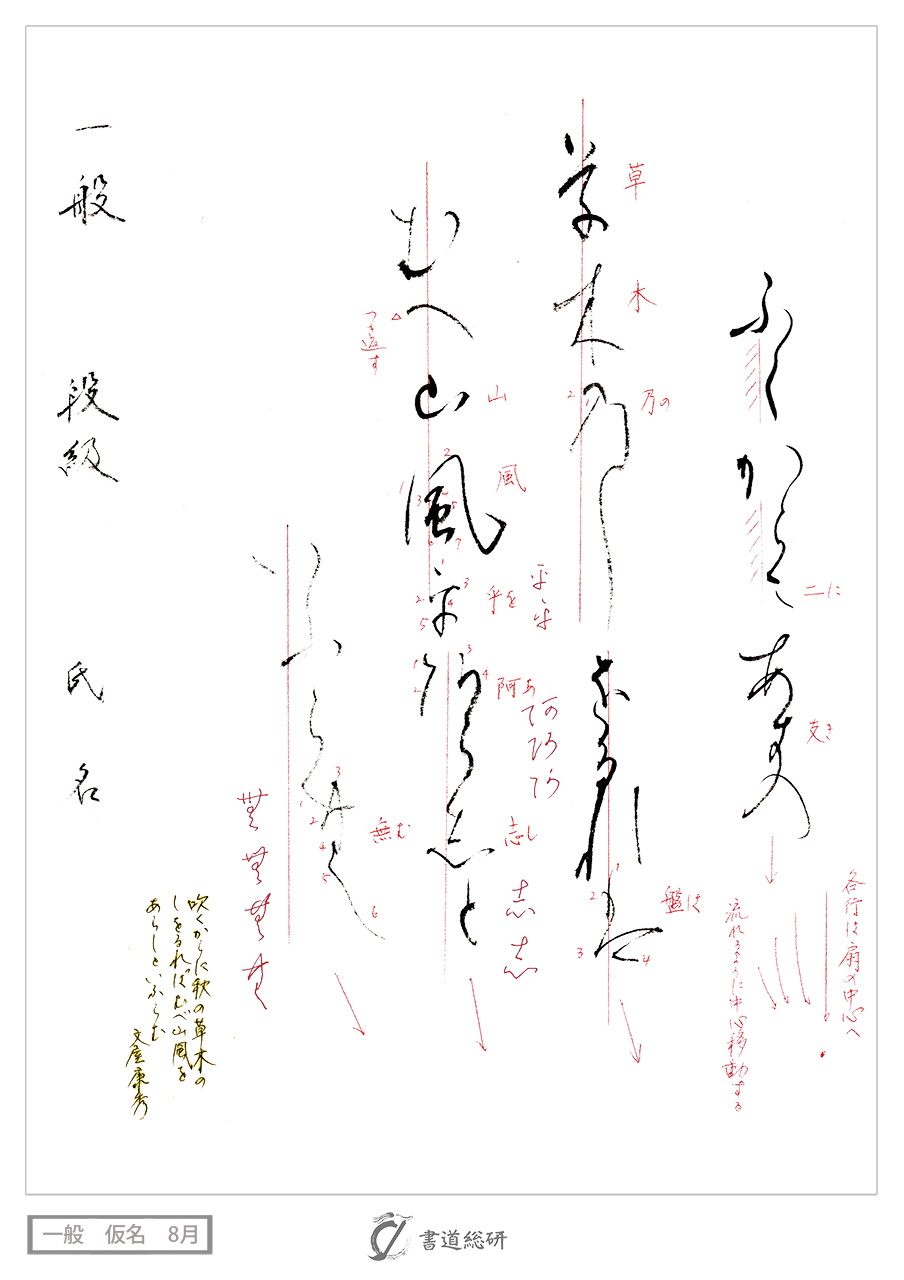 ふくからに あきの
草木乃しをるれ盤
むべ山風乎阿らしと
いふらむ
草
木
乃の
二に
支き
盤は
山
風
乎を
阿あ
志し
志
志
無む
つき返す
各行は扇の中心へ
流れるように中心移動する
吹くからに秋の草木の
しをるればむべ山風を
あらしといふらむ
文屋康秀
一般 段級 氏名
一般 仮名 8月
書道総研